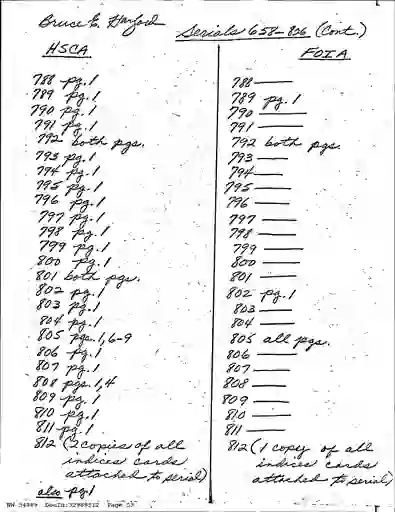 Bruce E.
Serials 658-826 (Cont.)
HSCA
FOIA
788 pg. 1
789 pg. 1
790 pg. 1
791 pg. 1
792 both pgs.
793 pg. 1
794 pg. 1
795 pg. 1
796 pg. 1
797 pg. 1
798 pg. 1
799 pg. 1
800 pg. 1
801 both pgs.
802 pg. 1
803 pg. 1
804 pg. 1
805 pgs. 1,6-9
806 pg. 1
807 pg. 1
808 pgs. 1,4
809 pg. 1
810 pg. 1
811 pg. 1
812 (2 copies of all
indices cards
attached to serial)
also pg 1
788 —
789 pg. 1
790 —
791 —
792 both pgs.
793 —
794 —
795 —
796 —
797 —
798 —
799 —
800 —
801 —
802 pg. 1
803 —
804 —
805 all pgs.
806 —
807 —
808 —
809 —
810 —
811 —
812 (1 copy of all
indices cards
attached to serial)
NW Page 53